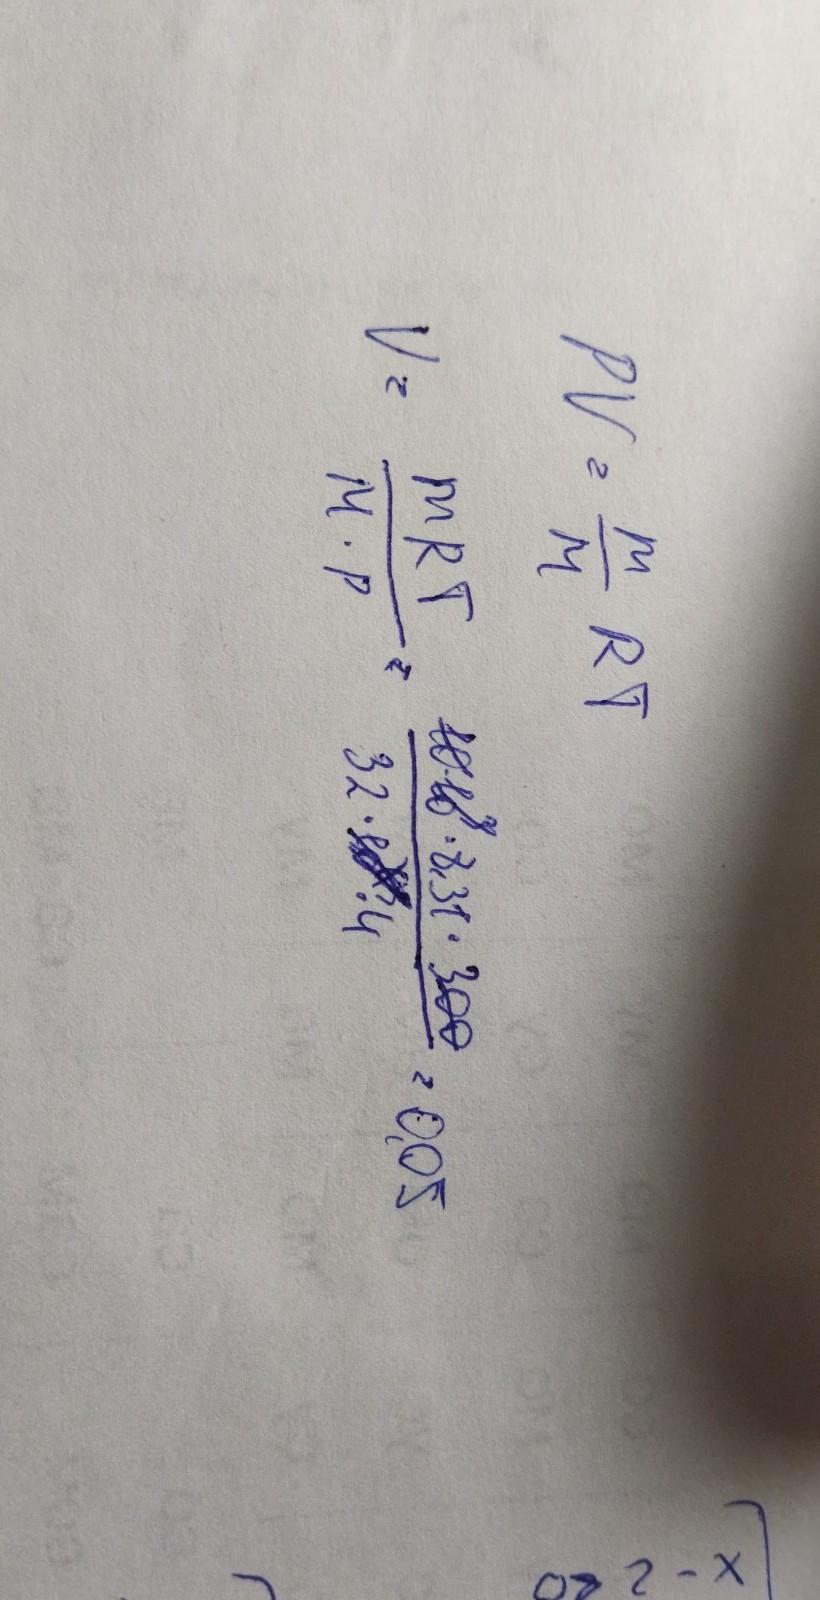 PV = m/M RT
V = mRT/M · P = 10·10³ · 8,31 · 300/32 · 4 = 0,05
x - 2 ≠ 0